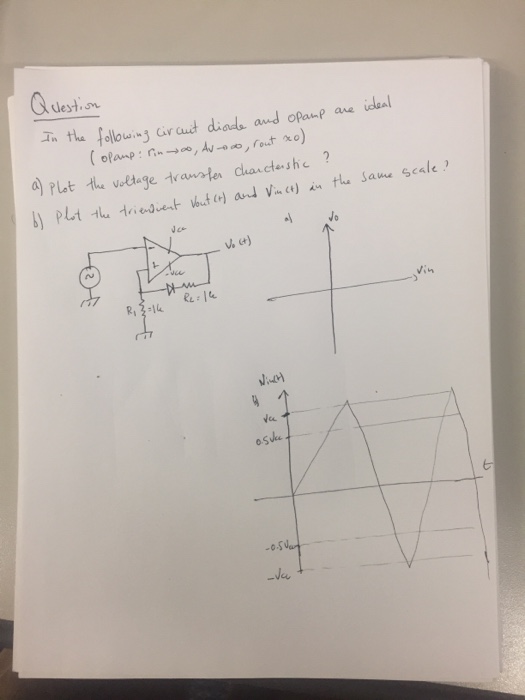 Question
In the following circuit diode and opamp are ideal
(opamp: rin→∞, Av→∞, rout≈0)
a) Plot the voltage transfer charcterstic ?
b) Plot the Vout(t) and Vin(t) in the same scale?
a)
Vo
Vcc
Vo(t)
-
+
-Vcc
~
Vin
R1 =1k
R2=1k
Vin(t)
b)
Vcc
0.5Vcc
t
-0.5Vcc
-Vcc